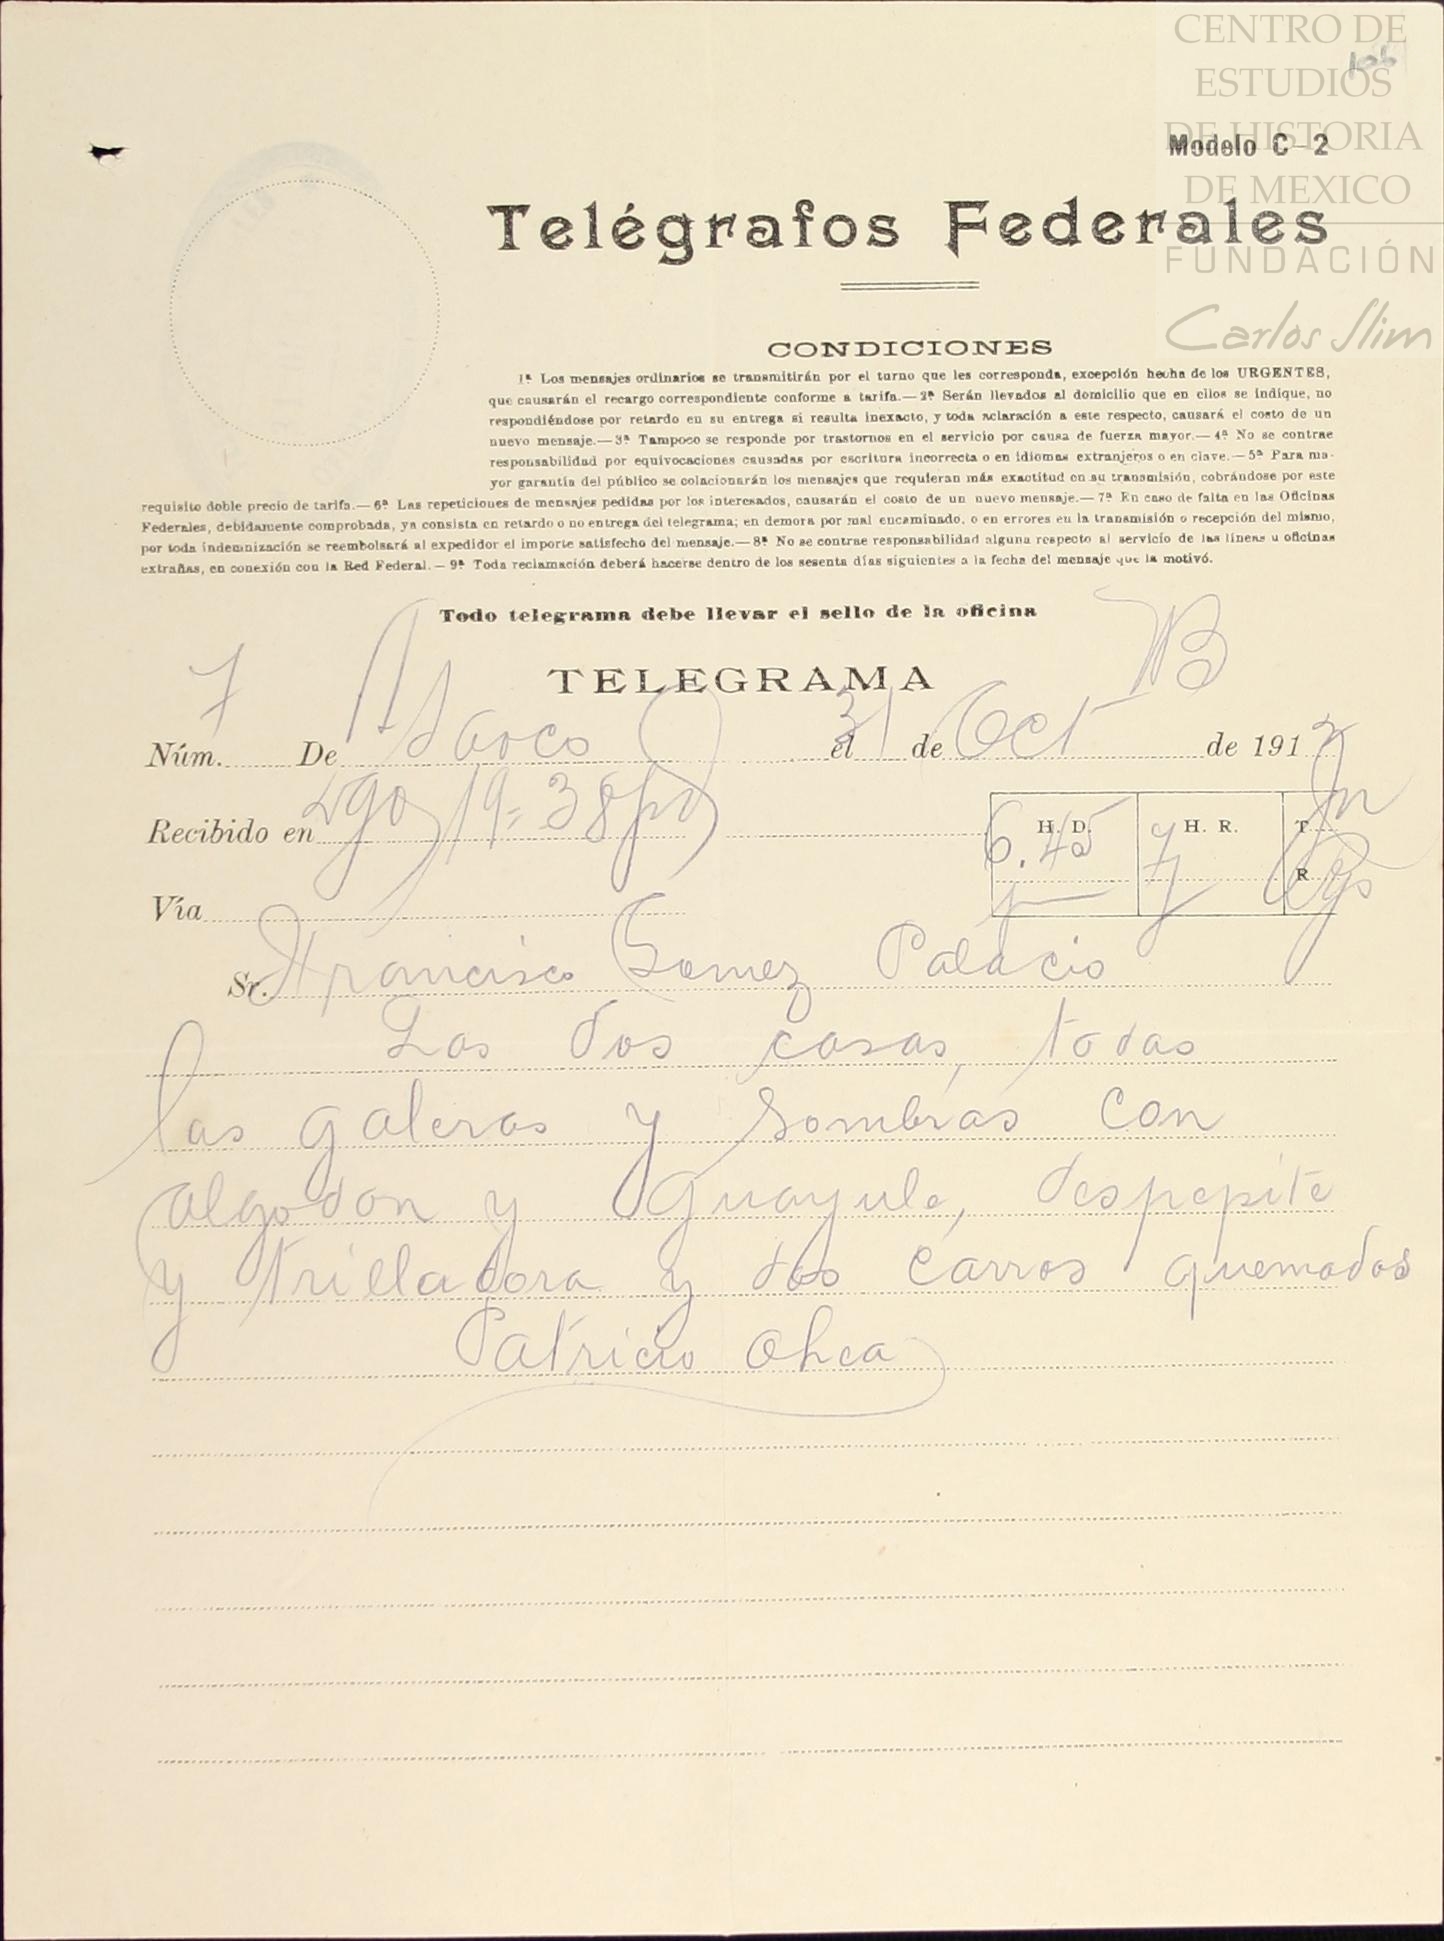 CENTRO DE
ESTUDIOS
DE HISTORIA
DE MEXICO
FUNDACIÓN
Carlos Slim
106
Modelo C-2
Telégrafos Federales
CONDICIONES
1ª Los mensajes ordinarios se transmitirán por el turno que les corresponda, excepción hecha de los URGENTES,
que causarán el recargo correspondiente conforme a tarifa.—2ª Serán llevados al domicilio que en ellos se indique, no
respondiéndose por retardo en su entrega si resulta inexacto, y toda aclaración a este respecto, causará el costo de un
nuevo mensaje.—3ª Tampoco se responde por trastornos en el servicio por causa de fuerza mayor.—4ª No se contrae
responsabilidad por equivocaciones causadas por escritura incorrecta o en idiomas extranjeros o en clave.—5ª Para ma-
yor garantía del público se colacionarán los mensajes que requieran más exactitud en su transmisión, cobrándose por este
requisito doble precio de tarifa.—6ª Las repeticiones de mensajes pedidas por los interesados, causarán el costo de un nuevo mensaje.—7ª En caso de falta en las Oficinas
Federales, debidamente comprobada, ya consista en retardo o no entrega del telegrama; en demora por mal encaminado, o en errores en la transmisión o recepción del mismo,
por toda indemnización se reembolsará al expedidor el importe satisfecho del mensaje.—8ª No se contrae responsabilidad alguna respecto al servicio de las líneas u oficinas
extrañas, en conexión con la Red Federal.—9ª Toda reclamación deberá hacerse dentro de los sesenta días siguientes a la fecha del mensaje que la motivó.
Todo telegrama debe llevar el sello de la oficina
TELEGRAMA
Núm. 7 De el 31 de Oct de 191
Recibido en 19-38
H. D. H. R. T
6.45 7 R
Vía
Sr. Francisco Gomez Palacio
Las dos casas, todas
las galeras y sombras con
algodon y Guayule, despepite
y trilladora y dos carros quemados
Patricio